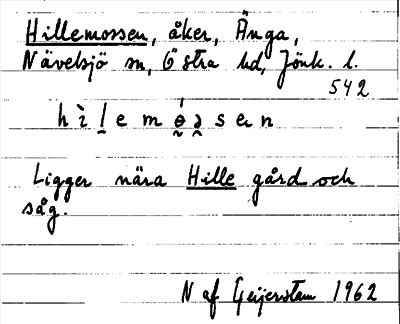 Hillemossen, åker, Änga,
Nävelsjö sn, Östra hd, Jönk. l.
542
Ligger nära Hille gård och
såg.
N af Geijerstam 1962